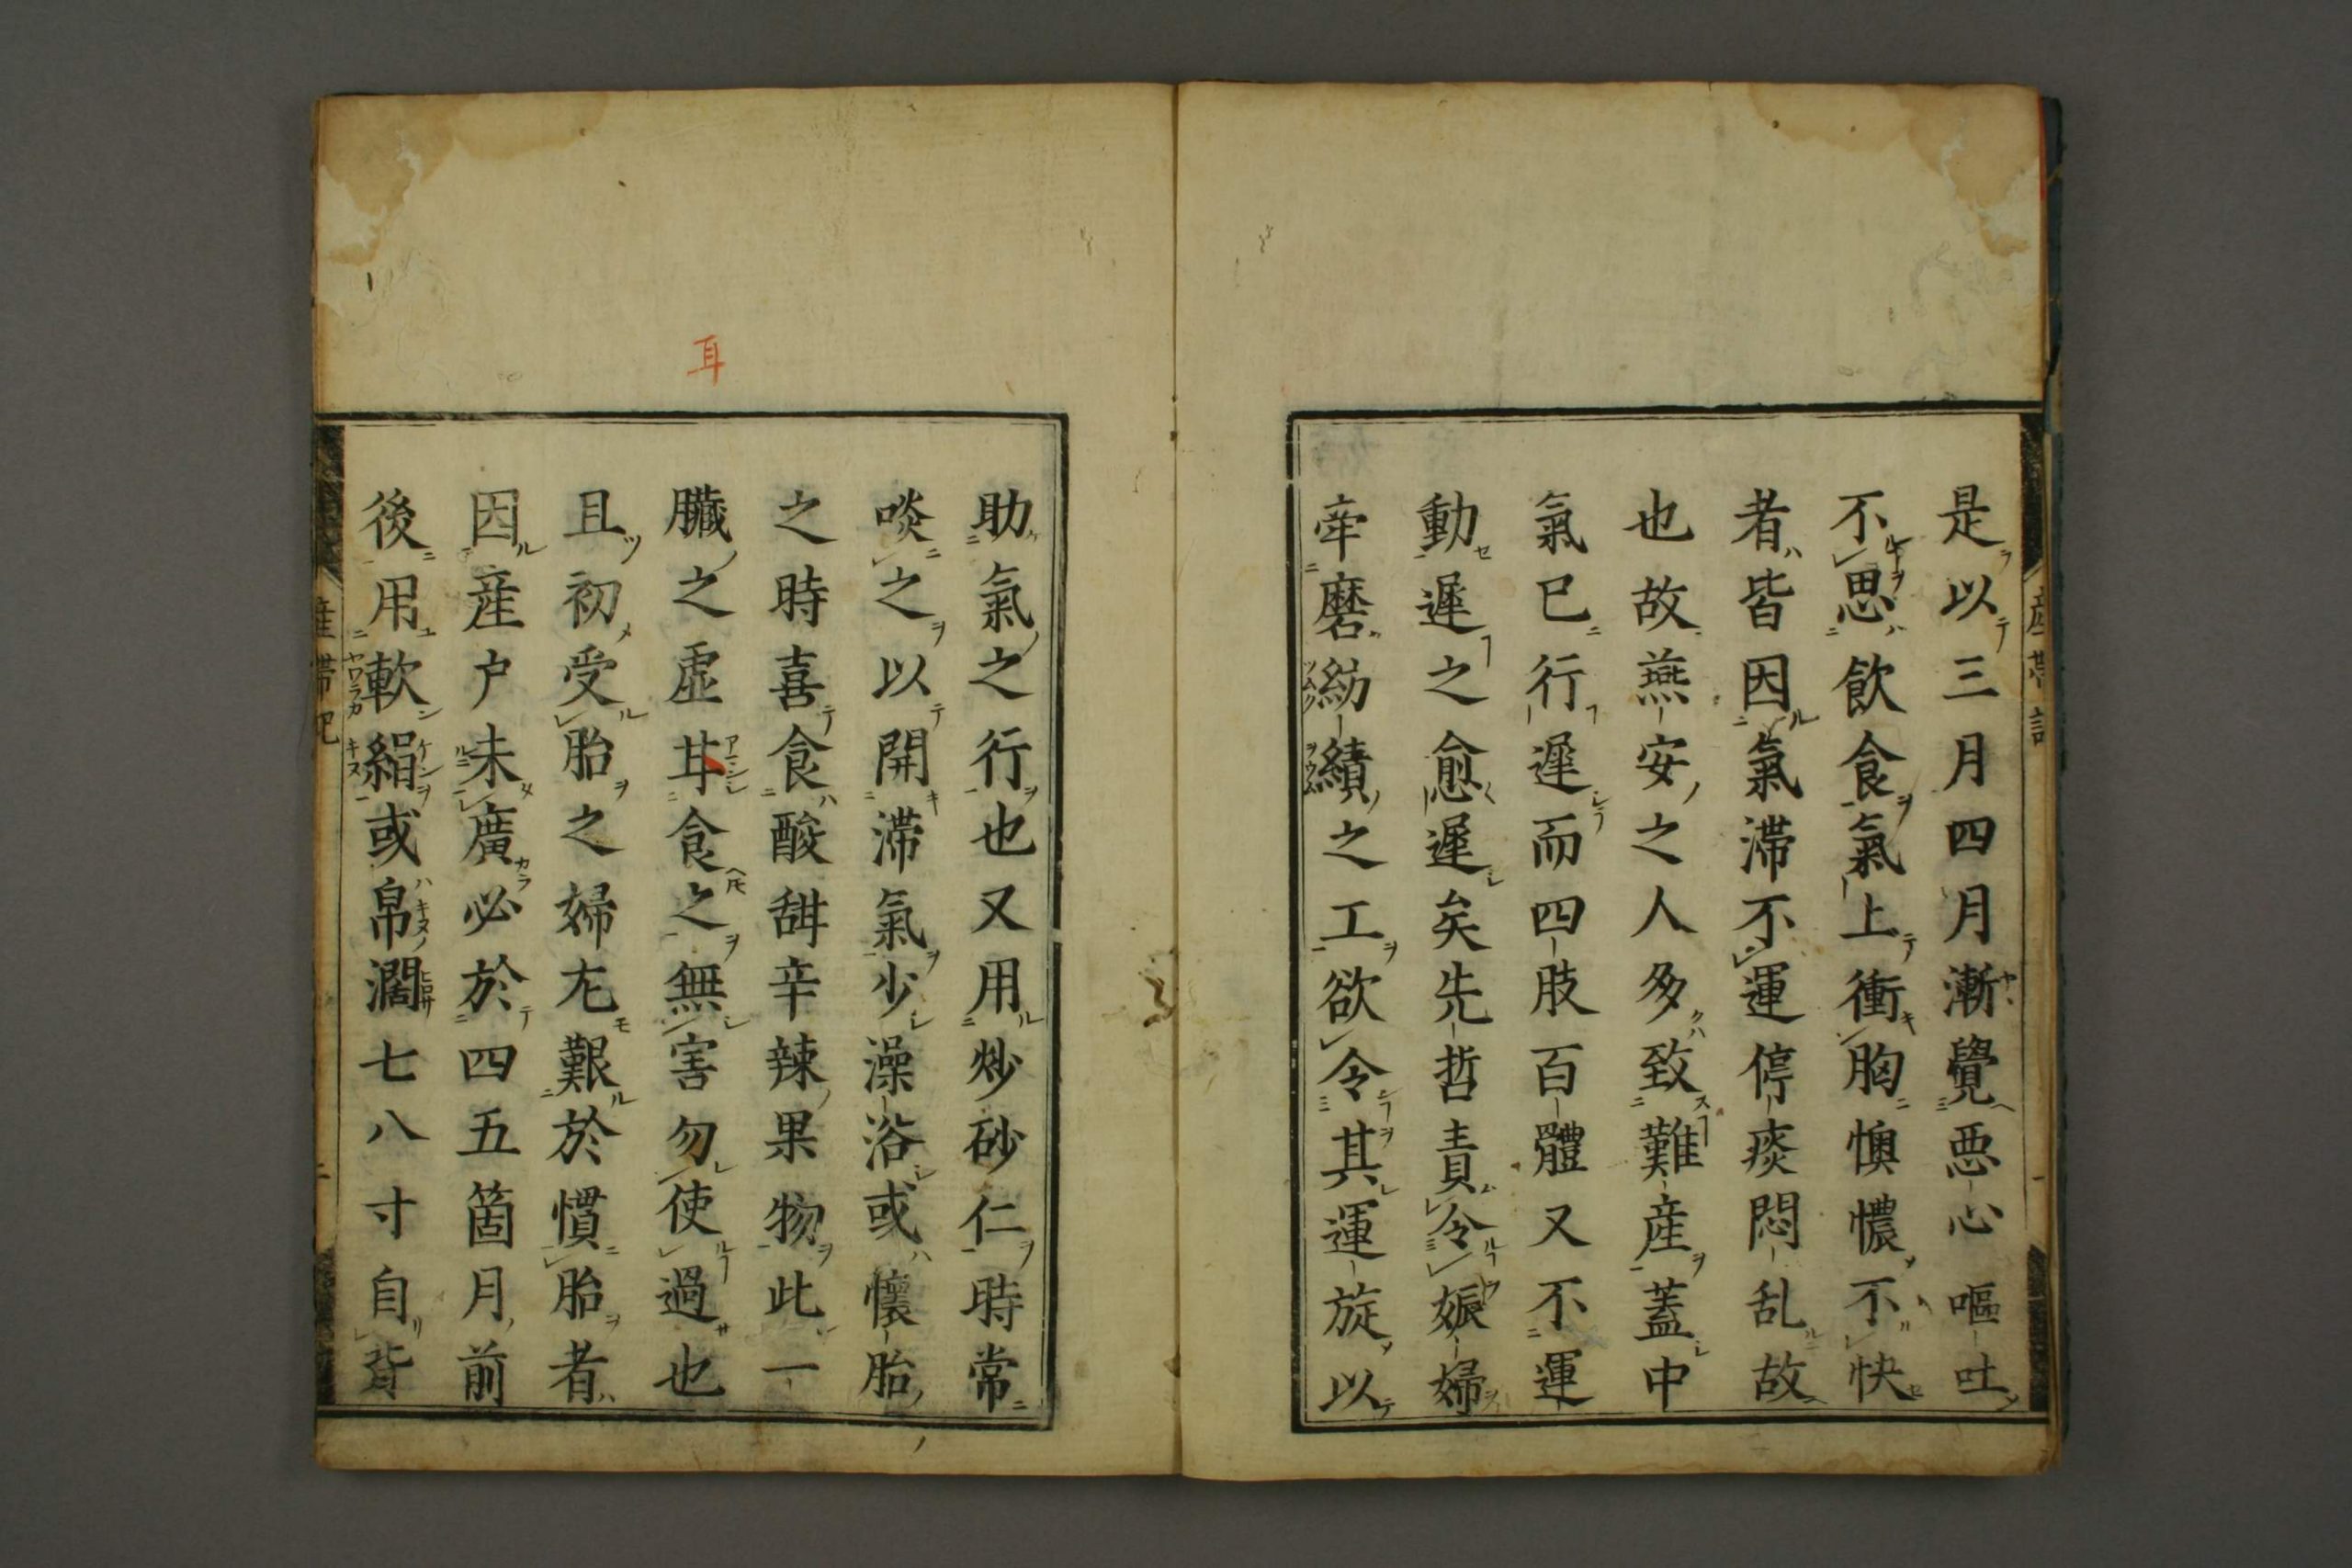 是以三月四月漸覺悪心嘔吐
不思飲食氣上衝胸懊憹不快
者皆因氣滞不運停痰悶乱故
也故燕安之人多致難産蓋中
氣已行遲而四肢百體又不運
動遲之愈遲矣先哲責令娠婦
牽磨紡績之工欲令其運旋以
助氣之行也又用炒砂仁時常
啖之以開滞氣少澡浴或懷胎
之時喜食酸甜辛辣果物此一
臓之虚甘食之無害勿使過也
且初受胎之婦尤艱於慣胎者
因産户未廣必於四五箇月前
後用軟絹或帛濶七八寸自背
耳
産帯記